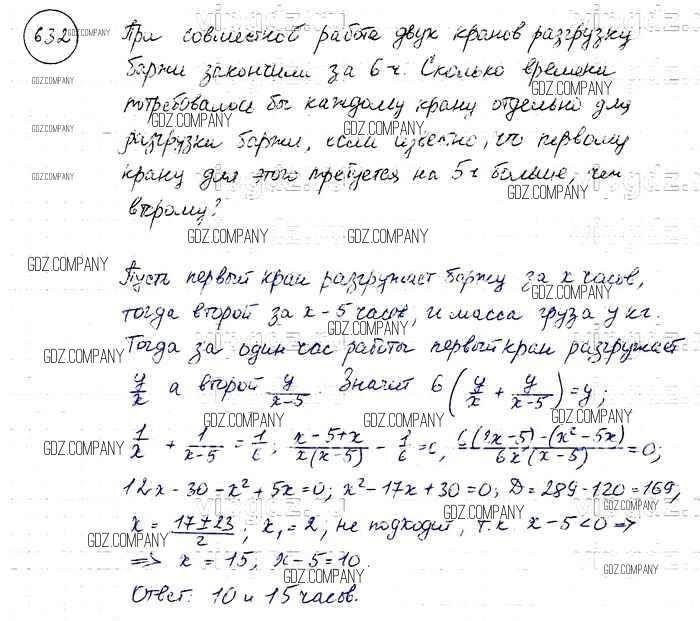 632
При совместной работе двух кранов разгрузку
баржи закончили за 6 ч. Сколько времени
потребовалось бы каждому крану отдельно для
разгрузки баржи, если известно, что первому
крану для этого требуется на 5 ч больше, чем
второму?
Пусть первый кран разгружает баржу за x часов,
тогда второй за x - 5 часов, и масса груза y кг.
Тогда за один час работы первый кран разгружает
y/x а второй y/(x-5). Значит 6(y/x + y/(x-5)) = y;
1/x + 1/(x-5) = 1/6; (x-5+x)/(x(x-5)) - 1/6 = 0, (6(2x-5)-(x²-5x))/(6x(x-5)) = 0;
12x - 30 - x² + 5x = 0; x² - 17x + 30 = 0; D = 289 - 120 = 169;
x = (17±23)/2; x₁ = 2; не подходит, т.к. x - 5 < 0 ⇒
⇒ x = 15, x - 5 = 10.
Ответ: 10 и 15 часов.
GDZ.COMPANY